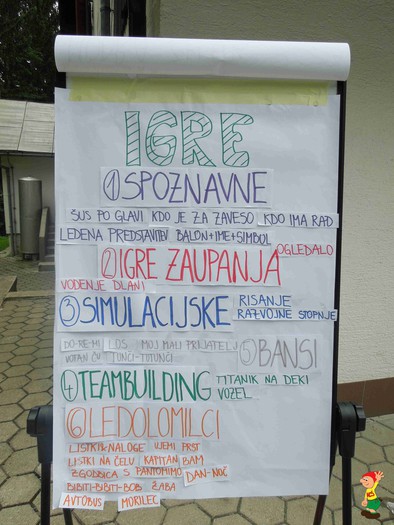 IGRE
① SPOZNAVNE
ŠUS PO GLAVI KDO JE ZA ZAVESO KDO IMA RAD
LEDENA PREDSTAVITEV BALON+IME+SIMBOL
OGLEDALO
② IGRE ZAUPANJA
VODENJE DLANI
③ SIMULACIJSKE RISANJE
RAZVOJNE STOPNJE
DO-RE-MI LOS MOJ MALI PRIJATELJ
TUNČI-TUTUNČI
⑤ BANSI
④ TEAMBUILDING TITANIK NA DEKI
VOZEL
⑥ LEDOLOMILCI
LISTKI&NALOGE UJEMI PRST
LISTKI NA ČELU KAPITAN BAM
ZGODBICA S PANTOMIMO DAN-NOČ
BIBITI-BIBITI-BOB ŽABA
AVTOBUS MORILEC